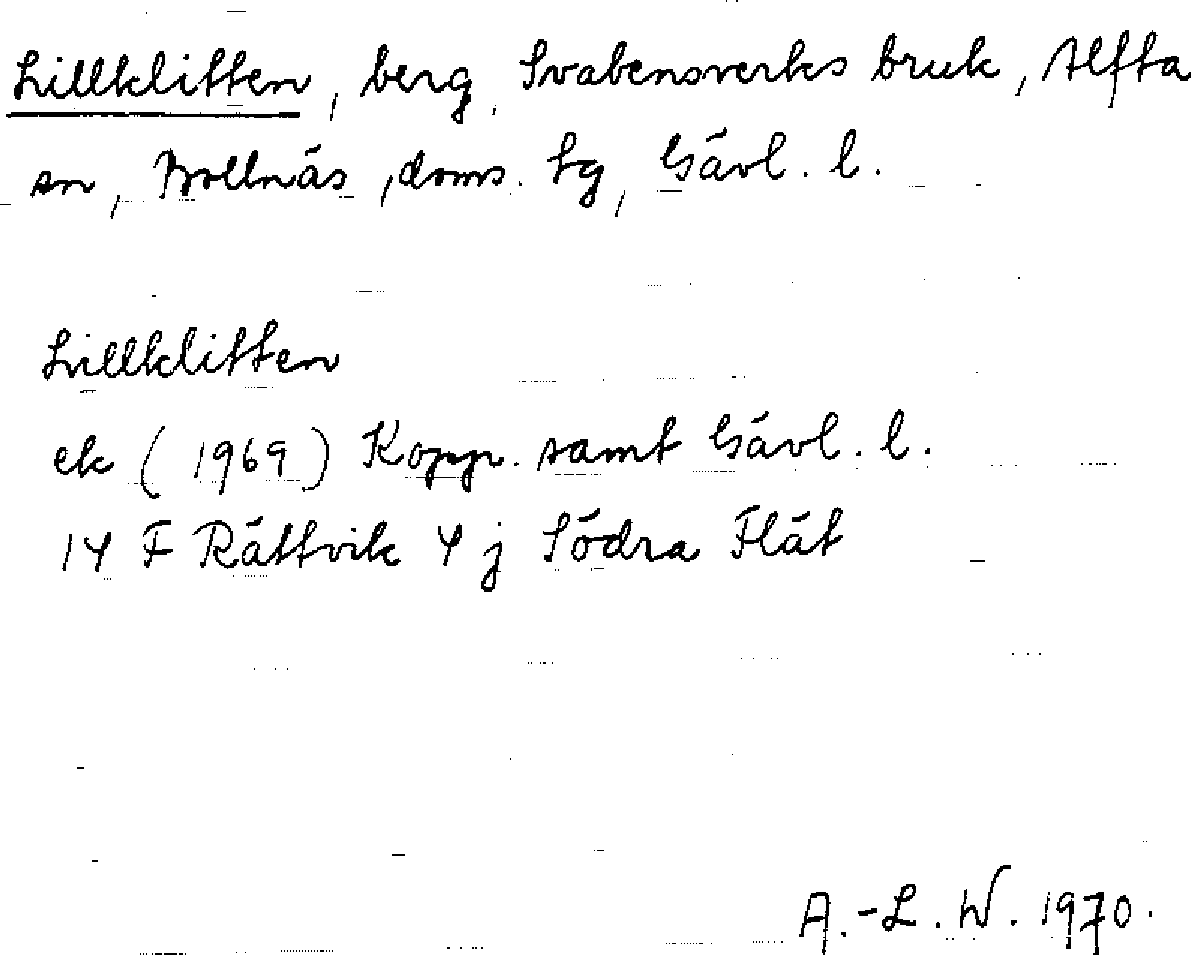 Lillklitten, berg, Svabensverks bruk, Alfta
sn, Bollnäs, doms. tg, Gävl. l.
Lillklitten
ek (1969) Kopp. samt Gävl. l.
14 F Rättvik 4 j Södra Flät
A.-L. W. 1970.